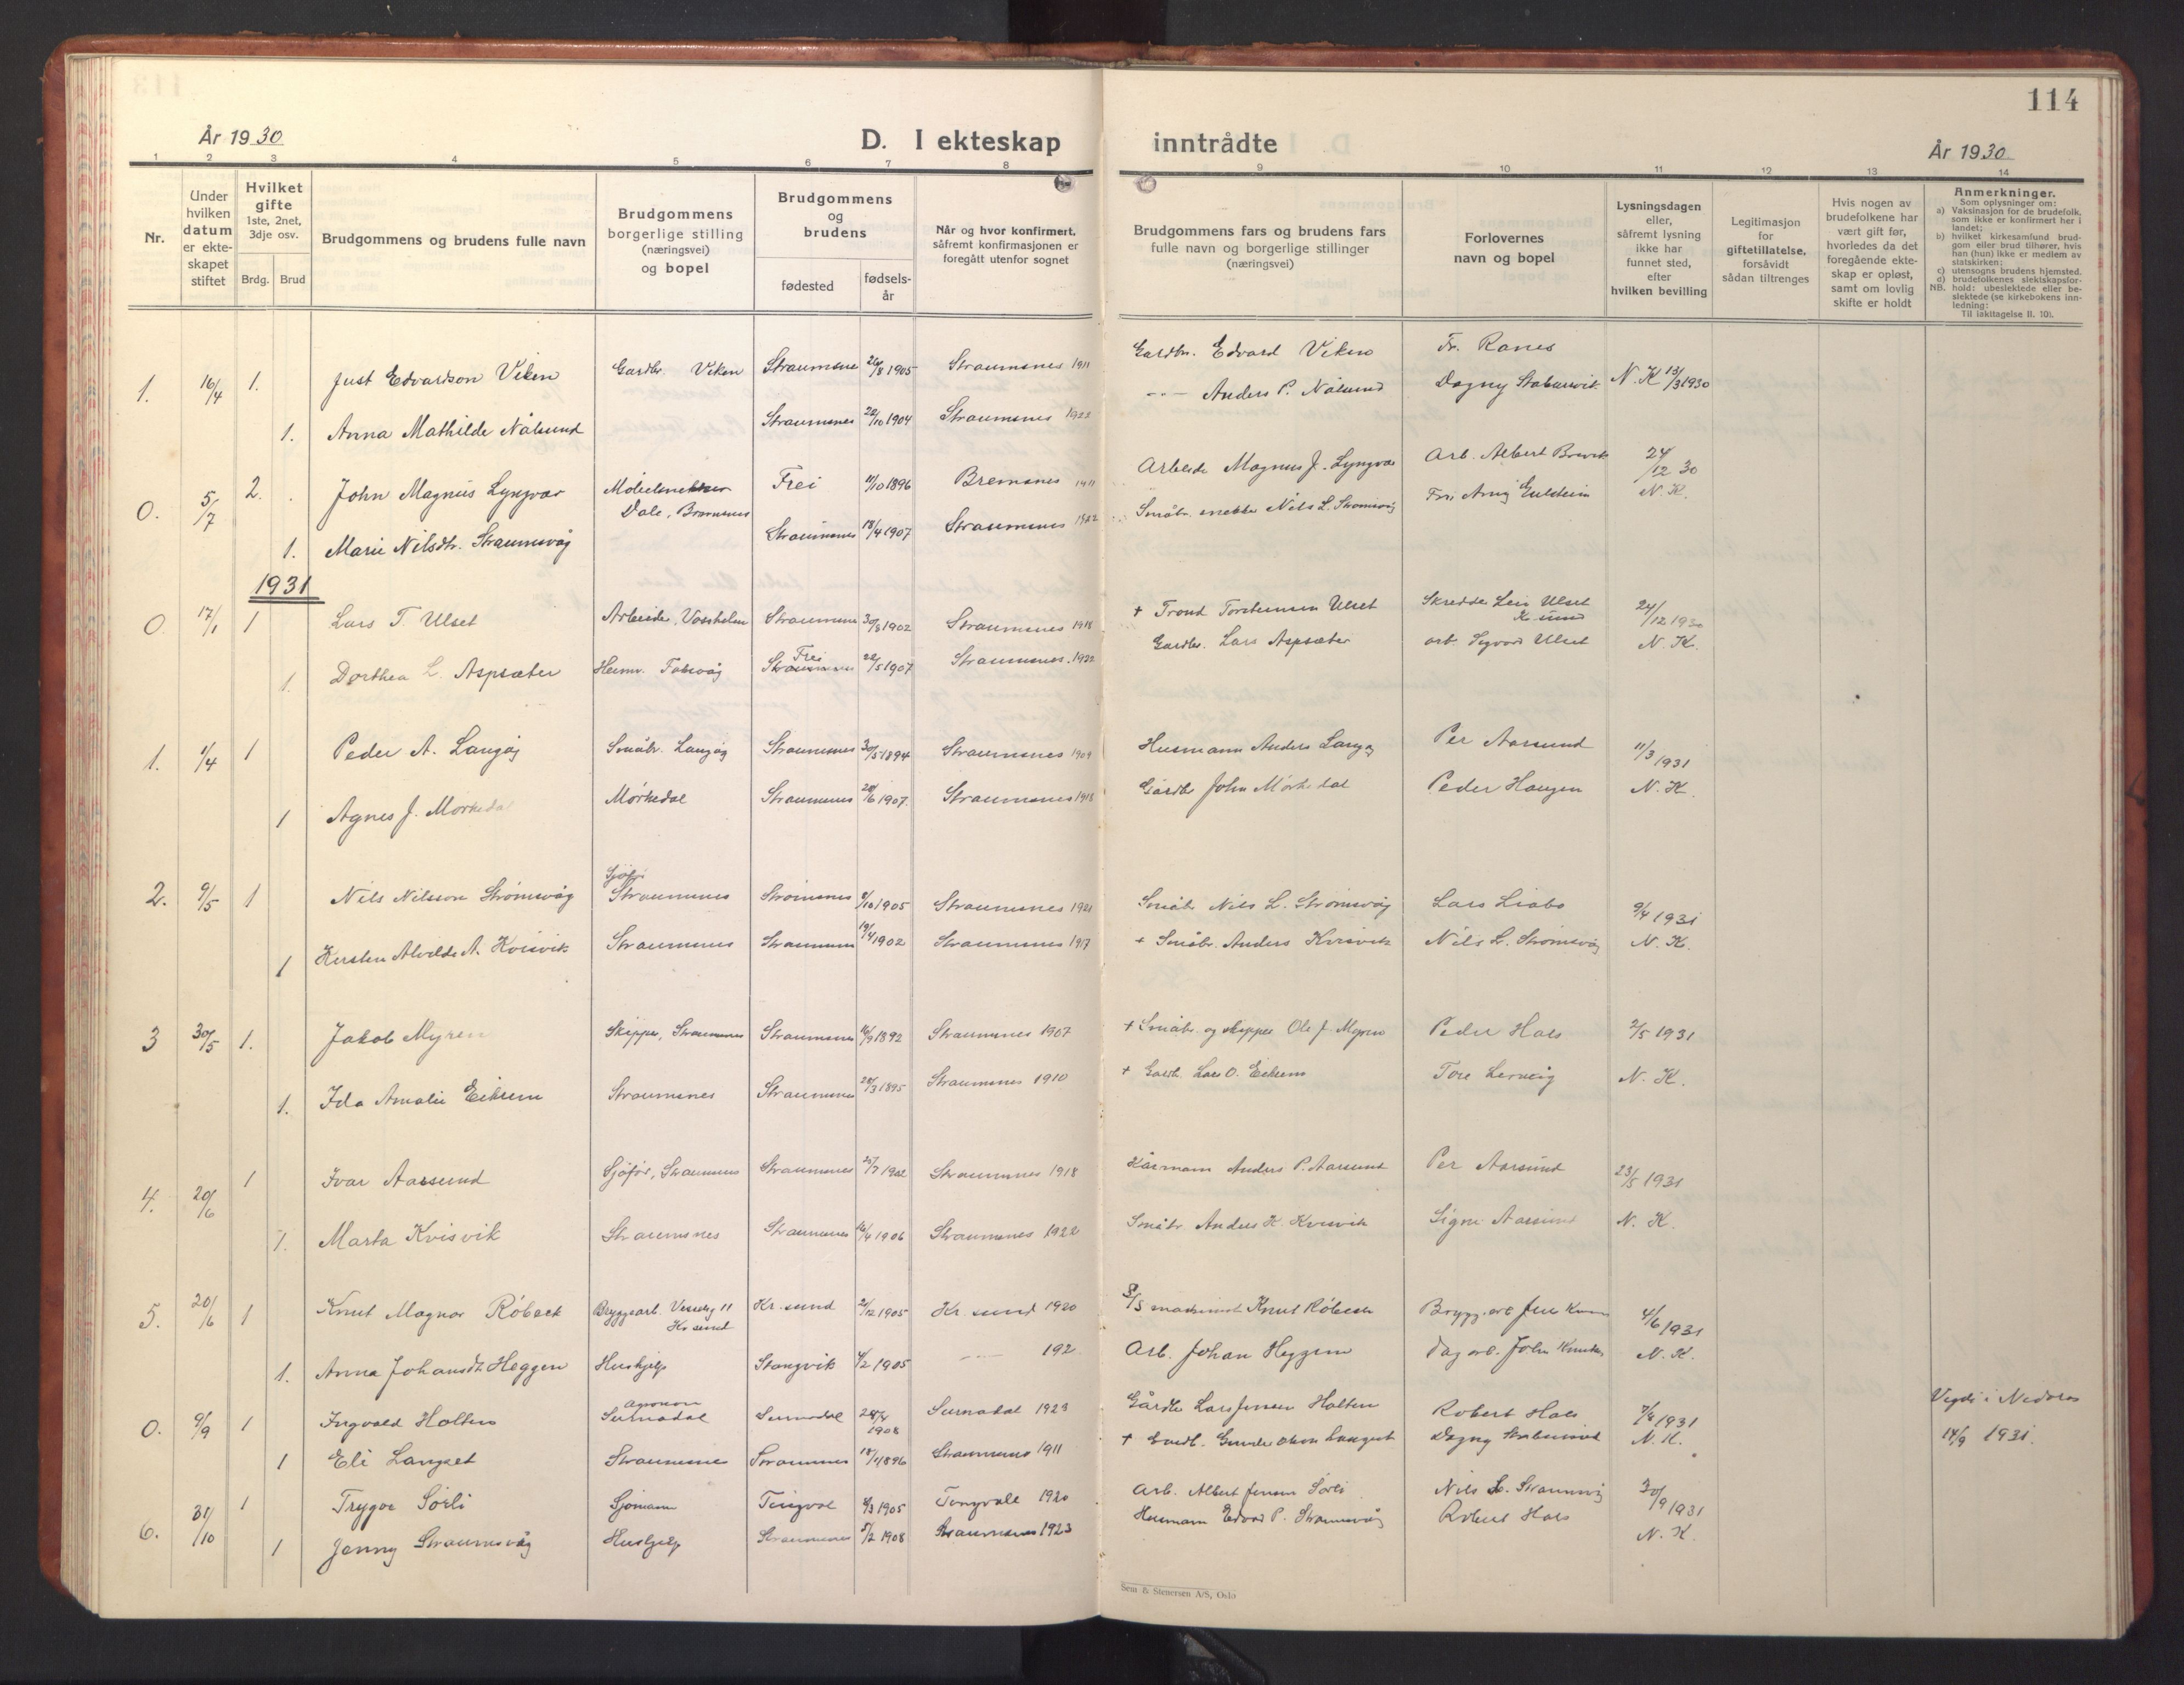 114
År 1930
D. I ekteskap inntrådte
År 1930
1 2 3 4 5 6 7 8 9 10 11 12 13 14
Nr.
Under hvilken datum er ekte-skapet stiftet
Hvilket gifte 1ste, 2net, 3dje osv.
Brdg. Brud
Brudgommens og brudens fulle navn
Brudgommens borgerlige stilling (næringsvei) og bopel
Brudgommens og brudens
fødested
fødsels-år
Når og hvor konfirmert, såfremt konfirmasjonen er foregått utenfor sognet
Brudgommens fars og brudens fars fulle navn og borgerlige stillinger (næringsvei)
Forlovernes navn og bopel
Lysningsdagen eller, såfremt lysning ikke har funnet sted, efter hvilken bevilling
Legitimasjon for giftetillatelse, forsåvidt sådan tiltrenges
Hvis nogen av brudefolkene har vært gift før, hvorledes da det foregående ekte-skap er opløst, samt om lovlig skifte er holdt
Anmerkninger.
Som oplysninger om:
a) Vaksinasjon for de brudefolk, som ikke er konfirmert her i landet;
b) hvilket kirkesamfund brud-gom eller brud tilhører, hvis han (hun) ikke er medlem av statskirken;
c) utensogns brudens hjemsted.
d) brudefolkenes slektskapsfor-
NB. hold: ubeslektede eller be-slektede (se kirkebokens inn-ledning:
Til iakttagelse II. 10).
1. 16/4 1. Just Edvardson Viken Gardbr. Viken Straumsnes 26/8 1905 Straumsnes 1911 Gardbr. Edvard Viken Fr. Ranes N. K 13/3 1930
1. Anna Mathilde Nålsund Straumsnes 22/10 1904 Straumsnes 1922 Anders P. Nålsund Dagny
0. 5/7 2. John Magnus Lyngvær Frei 11/10 1896 Bremsnes 1911 Arbeider Magnus J. Lyngvær Arb. Albert Brevik 24/12 30
Dale, Bremsnes
1. Marie Nilsdtr. Straumsvåg Straumsnes 18/4 1907 Straumsnes 1922 Småbr. snekker Nils L. Strømsvåg N. K.
1931
0. 17/1 1 Lars T. Ulset Arbeider, Straumsnes 30/8 1902 Straumsnes 1918 + Trond Torstensen Ulset Skredder Ulset K. sund 24/12 1930
1. Dorthea L. Aspsæter Frei Straumsnes 22/5 1907 Straumsnes. 1922 Gardbr. Lars Aspsæter arb. Sigvard Ulset N. K.
1. 1/4 1 Peder A. Langøy Småbr. Langøy Straumsnes 30/5 1894 Straumsnes 1909 Husmann Anders Langøy Per Aarsund 11/3 1931
1 Agnes J. Mørkedal Mørkedal Straumsnes 20/6 1907. Straumsnes 1918 Gårdbr John Mørkedal Peder Haugen N. K.
2. 9/5 1 Nils Nilsson Strømsvåg Sjåfør Straumsnes Strømsnes 8/10 1905 Straumsnes 1921 Småbr Nils L. Strømsvåg Lars Liabø 9/4 1931
1 Kirsten Alvilde A. Kvisvik Straumsnes Straumsnes 19/4 1902 Straumsnes 1917 + Småbr. Anders Kvisvik Nils L. Strømsvåg N. K.
3 30/5 1. Jakob Myren Skipper, Straumsnes Straumsnes 16/9 1892 Straumsnes 1907 + Småbr. og skipper Ole J. Myren Peder Hals 2/5 1931
1. Ida Amalie Eikrem Straumsnes Straumsnes 28/3 1895 Straumsnes 1910 + Gardb. Lars O. Eikrem Tore N. K.
4. 20/6 1 Ivar Aarsund Sjåfør, Straumsnes Straumsnes 25/7 1902 Straumsnes 1918 Kårmann Anders P. Aarsund Per Aarsund 23/5 1931
1. Marta Kvisvik Straumsnes Straumsnes 16/4 1906 Straumsnes 1922 Småbr Anders K. Kvisvik Signe Aarsund N. K.
5. 20/6 1 Knut Magnar Røbæck Bryggearb. 11 Kr. sund Kr. sund 2/12 1905 Kr. sund 1920 maskinist Knut Røbæck Brygg. arb 4/6 1931
1. Anna Johansdt. Heggem Hushjelp Stangvik 4/2 1905 192 Arb. Johan Heggem Dag arb. John N. K.
0. 9/9 1 Ingvald Holten agronom Surnadal Surnadal 28/4 1908 Surnadal 1923 Gårdbr Lars Jensen Holten Robert Hals 7/8 1931 Vigde i Nidaros
1 Eli Langset Straumsnes Straumsnes 18/4 1896 Straumsnes 1911 + Gardb. Gunder Olsen Langset Dagny N. K. 14/9 1931.
6. 31/10 1 Trygve Sørli Sjømann Tingvol 4/3 1905 Tingvoll 1920 Arb. Albert Jensen Sørli Nils L. Straumsvåg 30/9 1931
1 Jenny Straumsvåg Hushjelp Straumsnes 5/2 1908 Straumsnes 1923 Husmann Edvard P. Straumsvåg Robert Hals N. K.
Sem & Stenersen A/S, Oslo